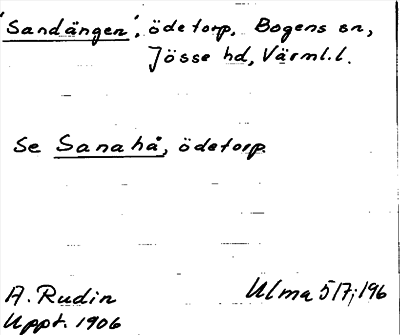 'Sandängen', ödetorp, Bogens sn,
Jösse hd, Värml.l.
Se Sanahå, ödetorp.
A. Rudin
Uppt. 1906
Ulma 517;196